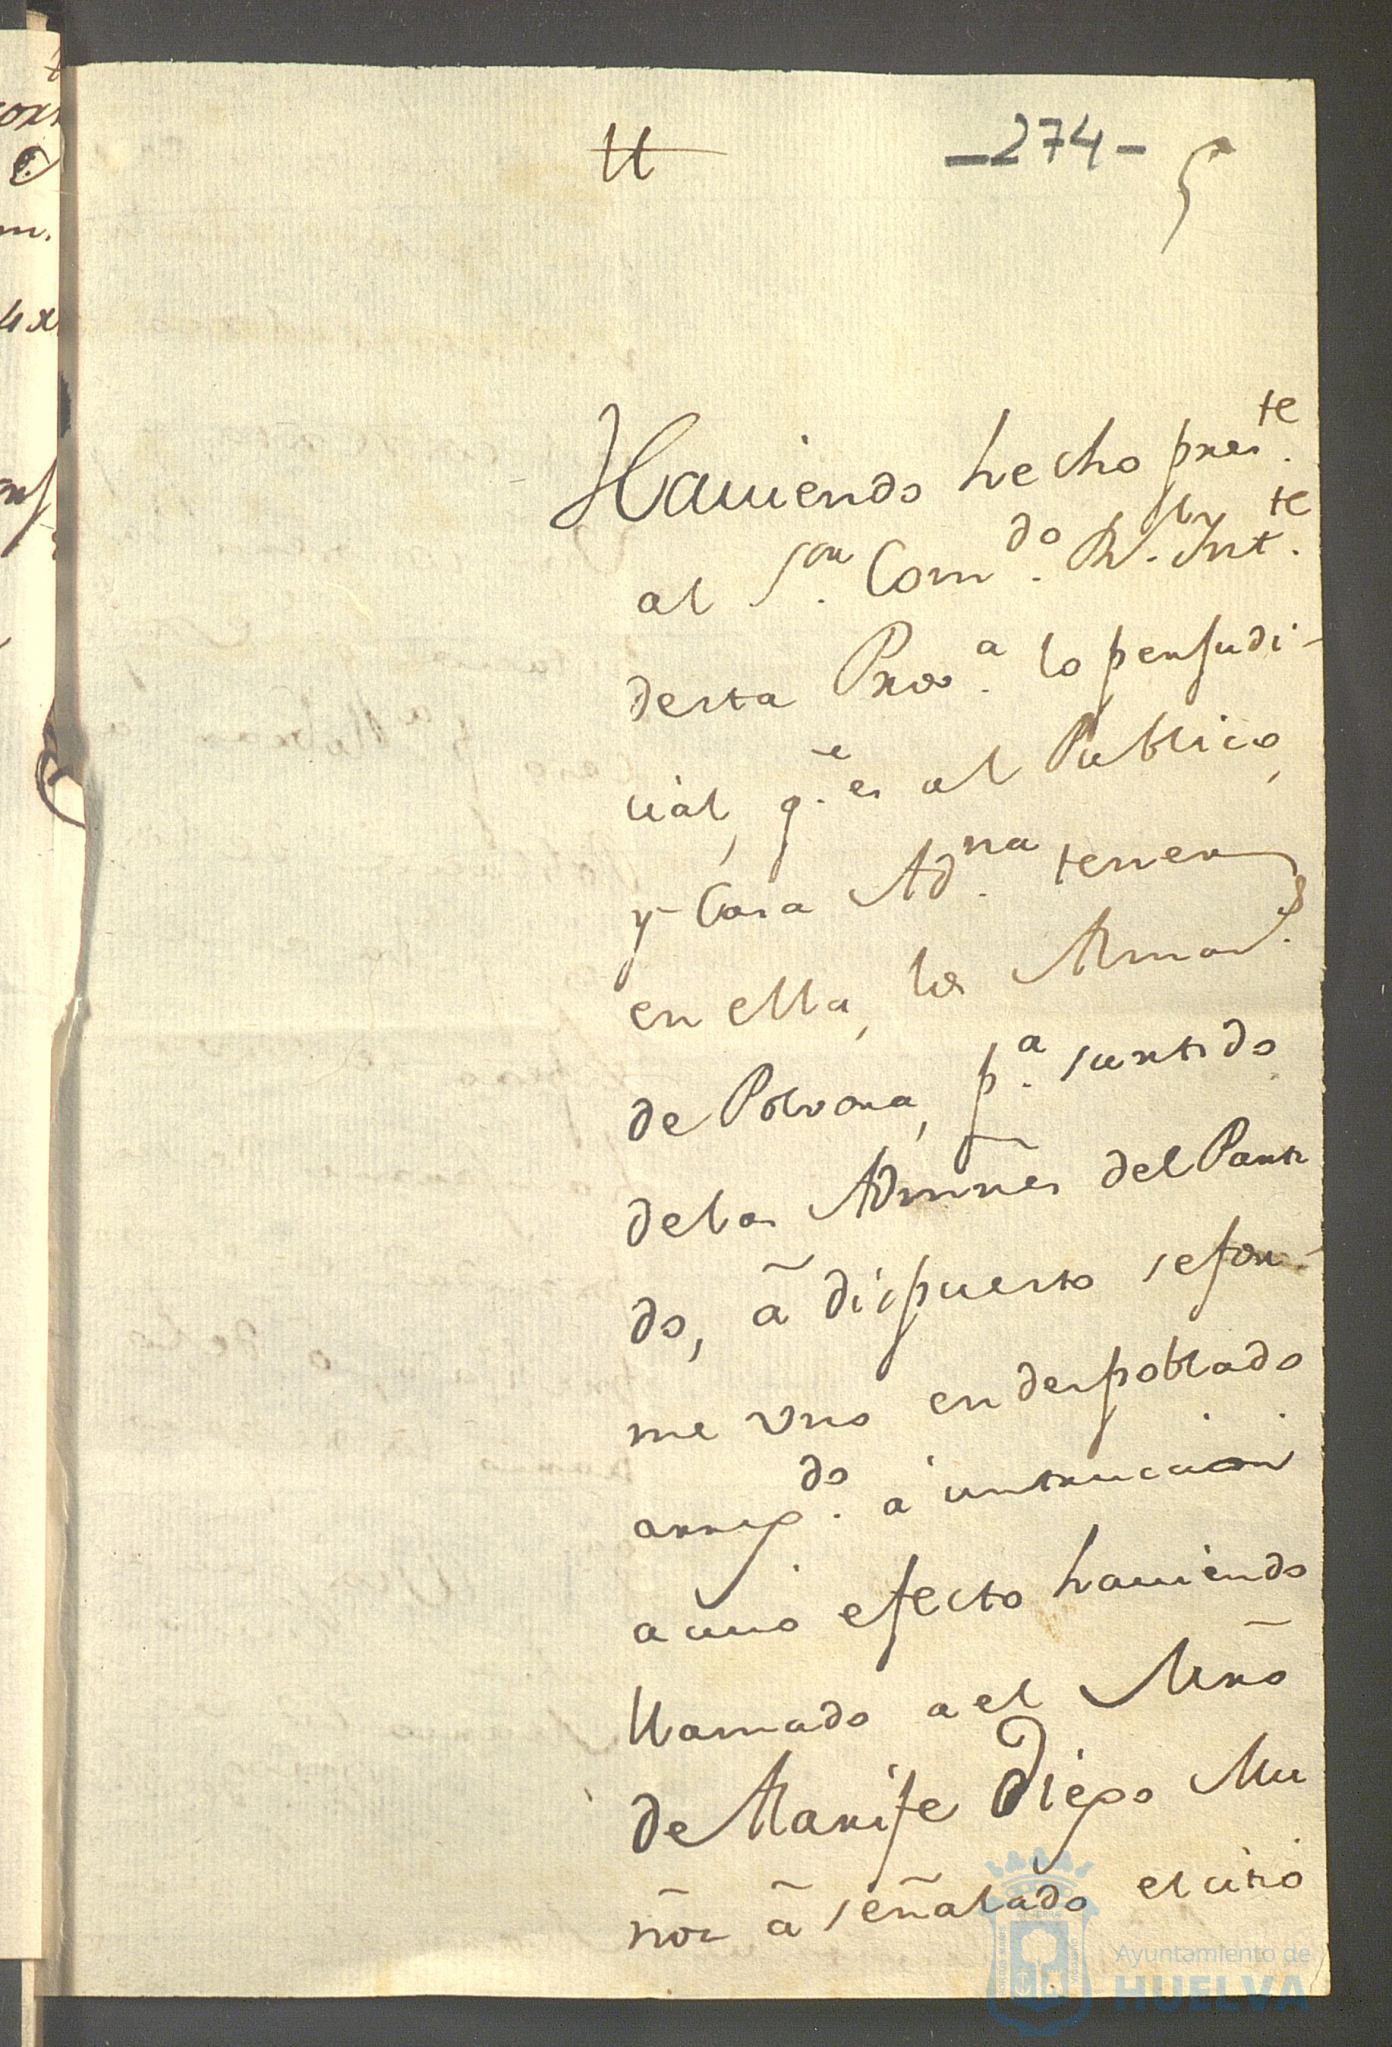 -274- 5
Haviendo hecho pres.te
al S.or Com.do R.l Int.te
desta Prov.a lo perjudi-
cial, q.e es al Publico,
y Casa Ad.na tener
en ella, los Almaz.s
de Polvora, p.a surtido
de las Admnes del Parti
do, ã dispuesto se for-
me uno en despoblado
arreg.do a instruccion
a cuio efecto haviendo
llamado a el Mrõ
de Alarife Diego Mu
ñoz ã señalado el citio
Ayuntamiento de
HUELVA